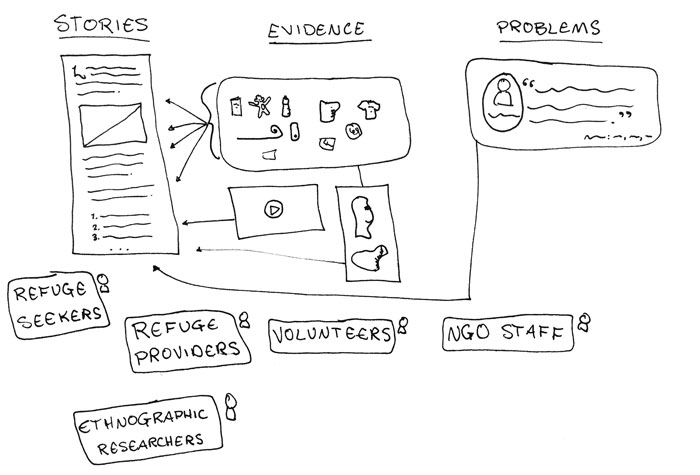 STORIES
EVIDENCE
PROBLEMS
1.
2.
3.
...
REFUGE
SEEKERS
REFUGE
PROVIDERS
VOLUNTEERS
NGO STAFF
ETHNOGRAPHIC
RESEARCHERS